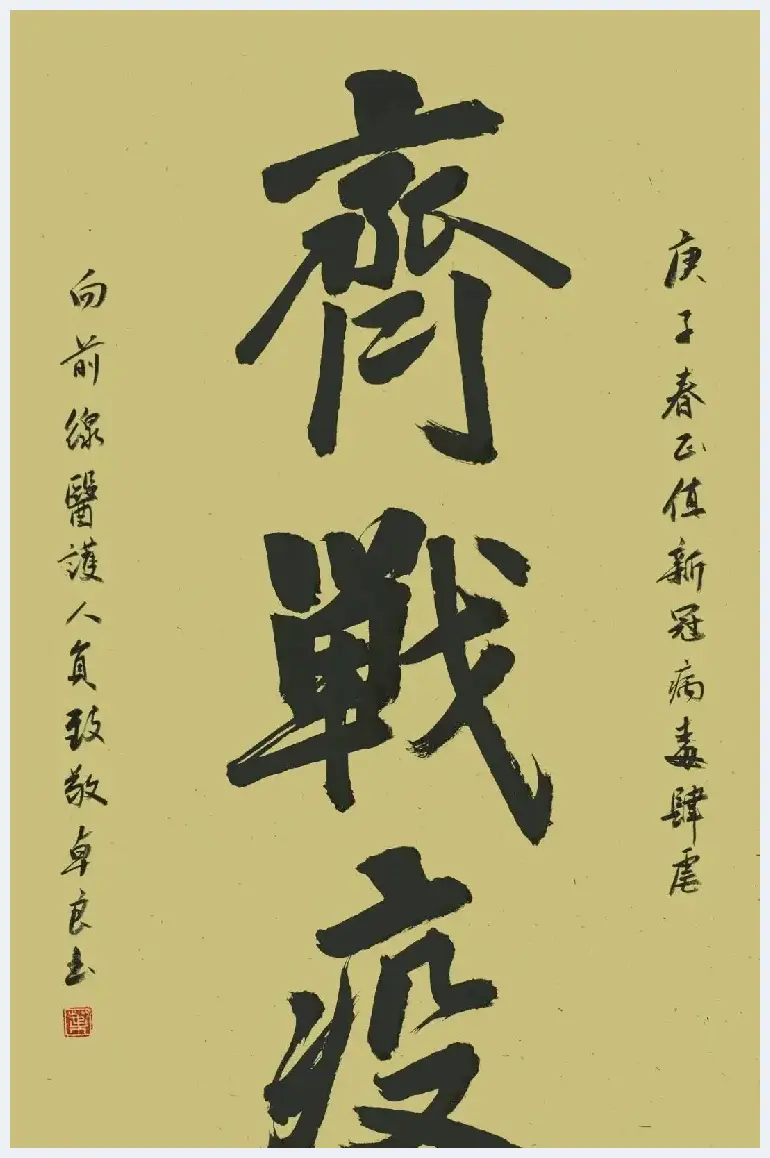 庚子春正值新冠病毒肆虐
齊戰疫
向前線醫護人員致敬卓良书